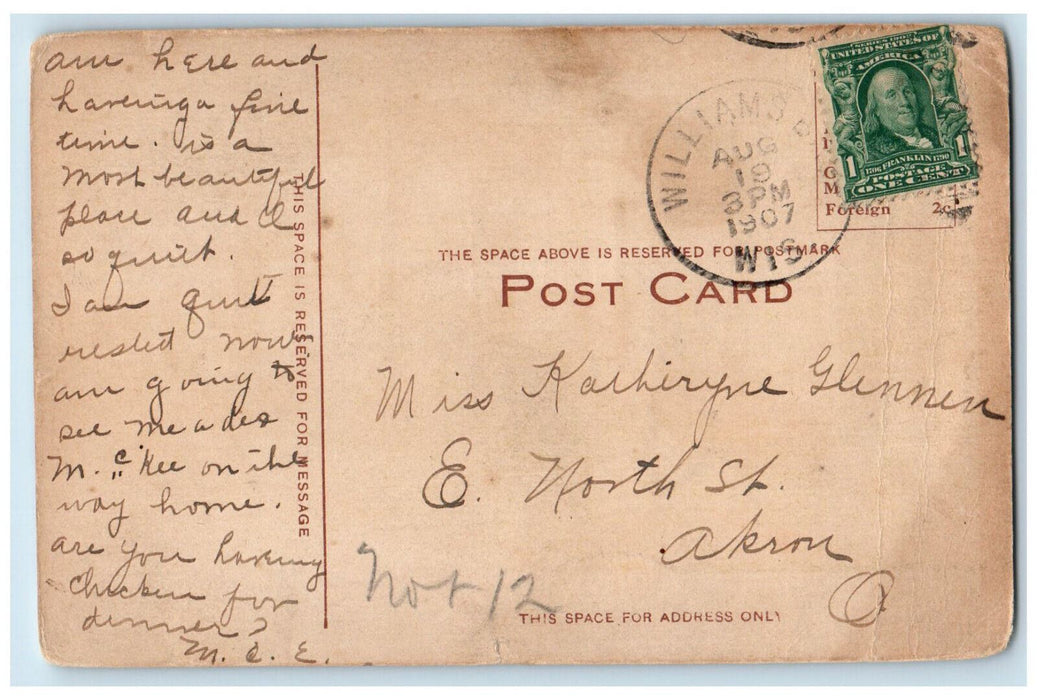 am here and
haveing a fine
time. is a
most beautiful
place and
so quiet.
I am quit
rested now.
am going to
see
M.c. Kee on the
way home.
are you having
chicken for
dinner?
M. C. E.
THIS SPACE IS RESERVED FOR MESSAGE
WILLIAMS B
AUG
19
3PM
1907
WIS
SERIES 1902
UNITED STATES OF
AMERICA
1706 FRANKLIN 1790
1 1
POSTAGE
ONE CENT
G
M
Foreign 2c.
THE SPACE ABOVE IS RESERVED FOR POSTMARK
POST CARD
Miss Katheryne Glennen
E. North St.
Akron
O
Not 12
THIS SPACE FOR ADDRESS ONLY